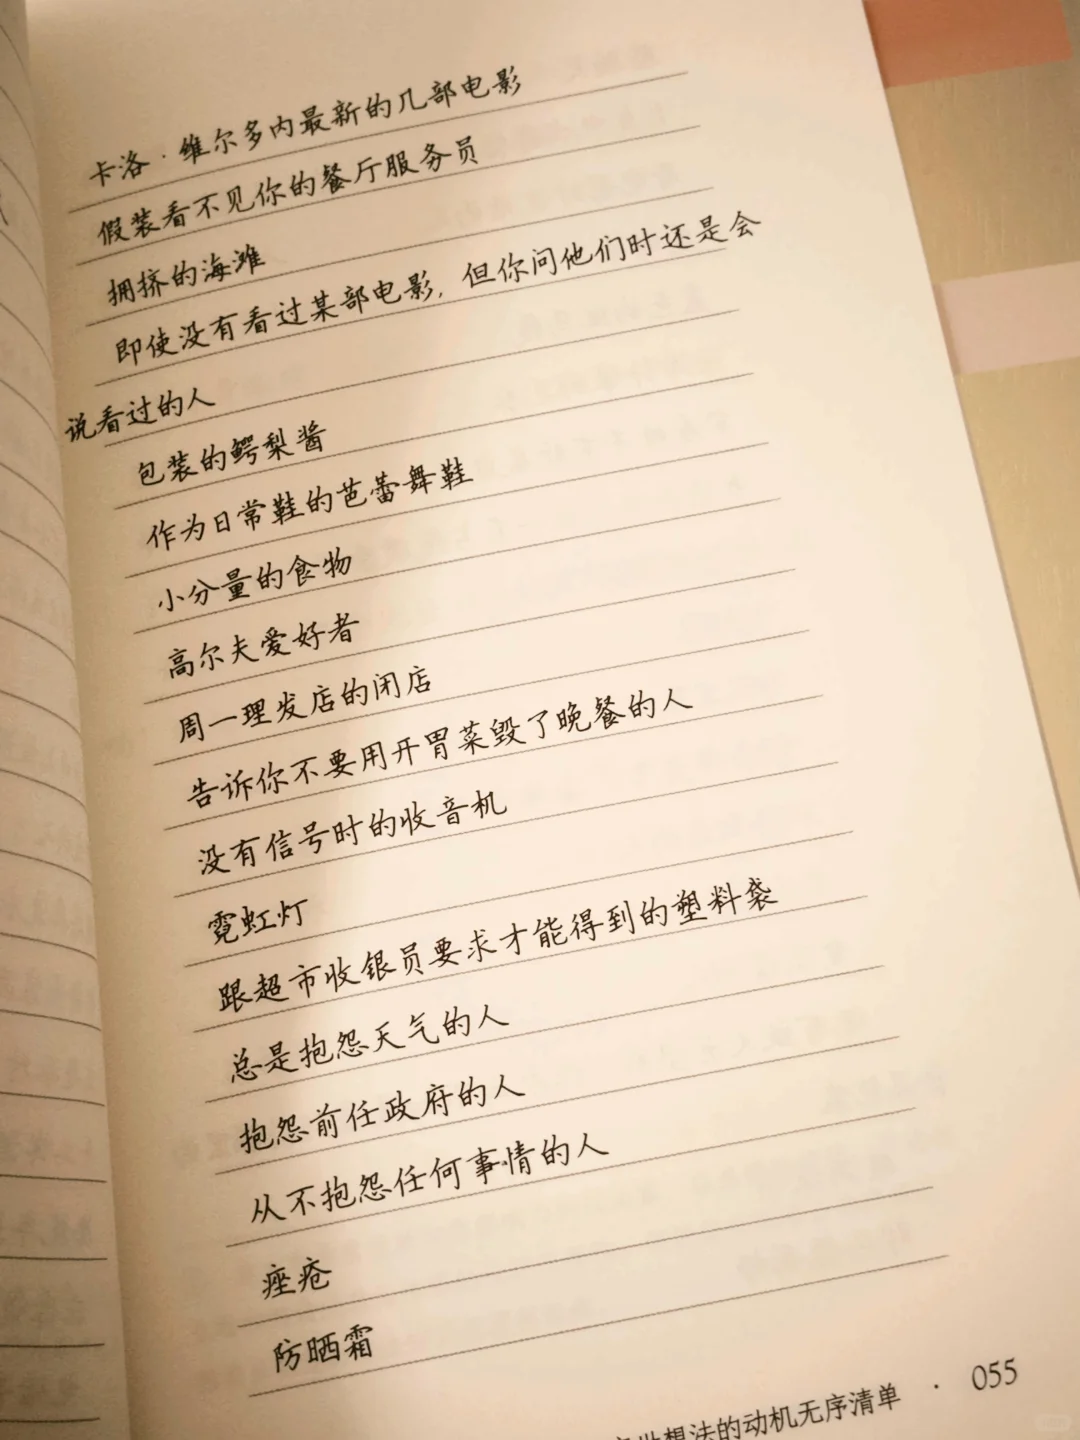 卡洛·维尔多内最新的几部电影
假装看不见你的餐厅服务员
拥挤的海滩
即使没有看过某部电影，但你问他们时还是会
说看过的人
包装的鳄梨酱
作为日常鞋的芭蕾舞鞋
小分量的食物
高尔夫爱好者
周一理发店的闭店
告诉你不要用开胃菜毁了晚餐的人
没有信号时的收音机
霓虹灯
跟超市收银员要求才能得到的塑料袋
总是抱怨天气的人
抱怨前任政府的人
从不抱怨任何事情的人
痤疮
防晒霜
想法的动机无序清单 · 055